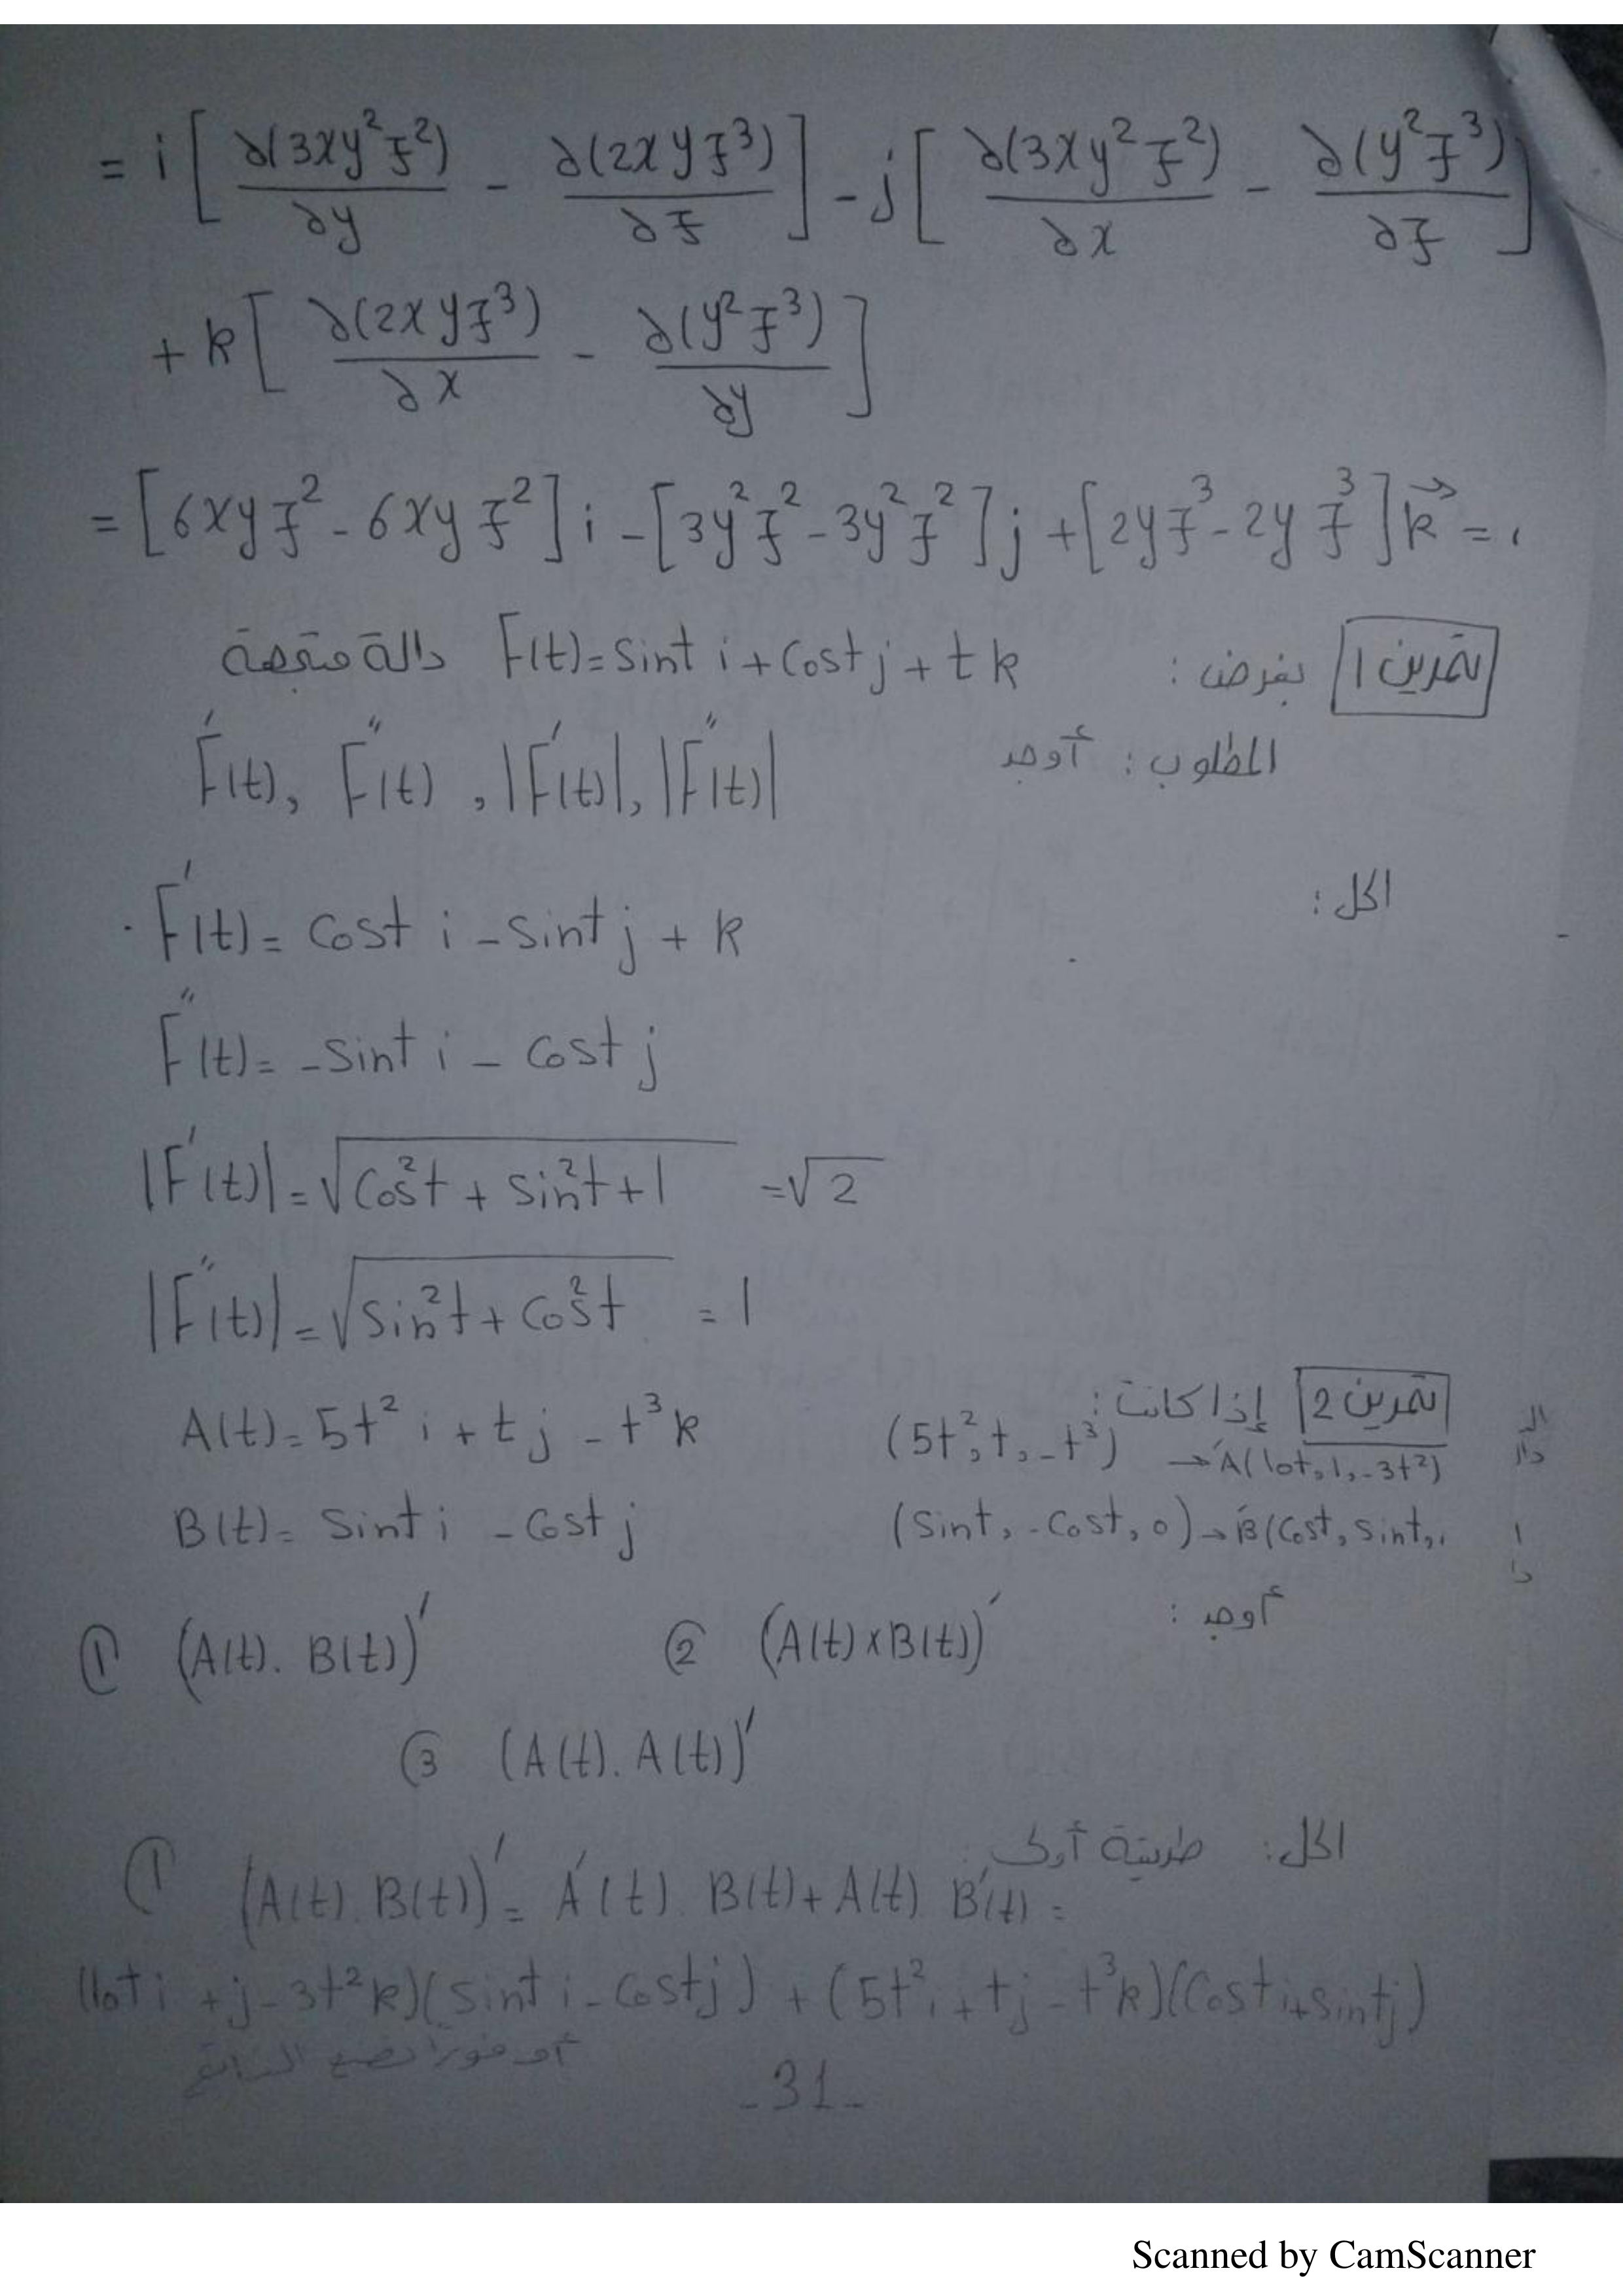 = i [ ∂(3xy²z²)/∂y - ∂(2xyz³)/∂z ] - j [ ∂(3xy²z²)/∂x - ∂(y²z³)/∂z ]
+ k [ ∂(2xyz³)/∂x - ∂(y²z³)/∂y ]
= [6xyz² - 6xyz²] i - [3y²z² - 3y²z²] j + [2yz³ - 2yz³] k⃗ = ٠
تمرين 1 بفرض : F(t) = sint i + cost j + t k دالة متجهة
المطلوب : أوجد F'(t), F''(t), |F'(t)|, |F''(t)|
الحل :
F'(t) = cost i - sint j + k
F''(t) = -sint i - cost j
|F'(t)| = √(cos²t + sin²t + 1) = √2
|F''(t)| = √(sin²t + cos²t) = 1
تمرين 2 إذا كانت :
A(t) = 5t² i + t j - t³ k (5t², t, -t³) → A'(10t, 1, -3t²)
B(t) = sint i - cost j (sint, -cost, 0) → B'(cost, sint, ٠
أوجد :
① (A(t). B(t))' ② (A(t) x B(t))'
③ (A(t). A(t))'
الحل : طريقة أولى :
① (A(t). B(t))' = A'(t). B(t) + A(t). B'(t) =
(10t i + j - 3t² k)(sint i - cost j) + (5t² i + t j - t³ k)(cost i + sint j)
أو فوراً نضع
-31-
Scanned by CamScanner